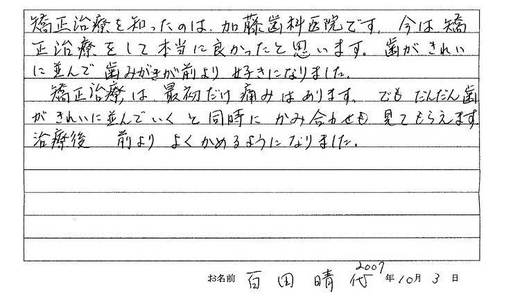 矯正治療を知ったのは、加藤歯科医院です。今は矯
正治療をして本当に良かったと思います。歯がきれい
に並んで歯みがきが前より好きになりました。
矯正治療は、最初だけ痛みはあります。でもだんだん歯
がきれいに並んでいくと同時にかみ合わせも見てもらえます。
治療後 前よりよくかめるようになりました。
お名前 百田 晴代 2007年10月3日